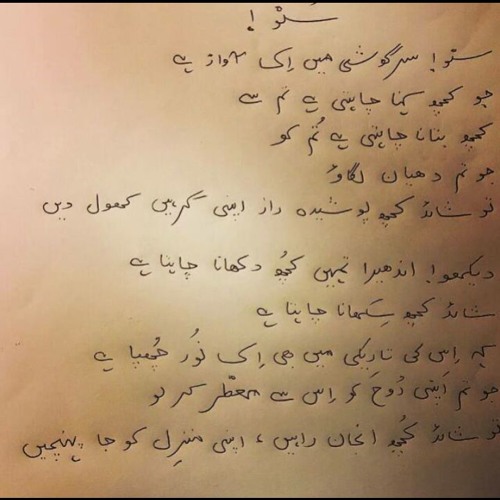 سُنو!
سنو! سرگوشی میں اِک آواز ہے
جو کچھ کہنا چاہتی ہے تم سے
کچھ بتانا چاہتی ہے تُم کو
جو تم دھیان لگاؤ
تو شائد کچھ پوشیدہ راز اپنی گرہیں کھول دیں
دیکھو! اندھیرا تمہیں کچھ دکھانا چاہتا ہے
شائد کچھ سِکھانا چاہتا ہے
کہ اِس کی تاریکی میں بھی اِک نُور چُھپا ہے
جو تم اَپنی رُوح کو اِس سے معطّر کر لو
تو شائد کُچھ انجان راہیں، اپنی منزل کو جا پہنچیں